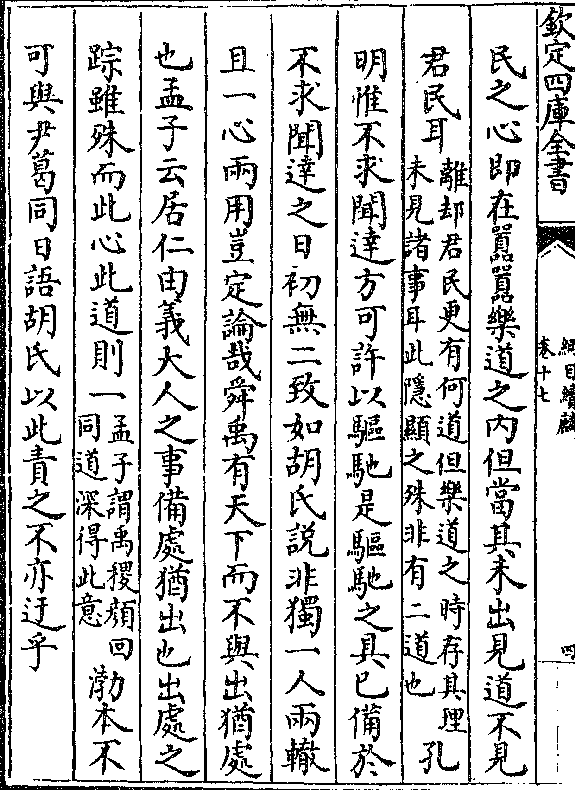 欽定四庫全書
綱目續麟
卷十七
四
民之心即在囂囂樂道之内但當其未出見道不見
君民耳離却君民更有何道但樂道之時存其理未見諸事耳此隱顯之殊非有二道也孔
明惟不求聞達方可許以驅馳是驅馳之具已備於
不求聞達之日初無二致如胡氏說非獨一人兩轍
且一心兩用豈定論哉舜禹有天下而不與出猶處
也孟子云居仁由義大人之事備處猶出也出處之
踪雖殊而此心此道則一孟子謂禹稷顔回同道深得此意渤本不
可與尹葛同日語胡氏以此責之不亦迂乎